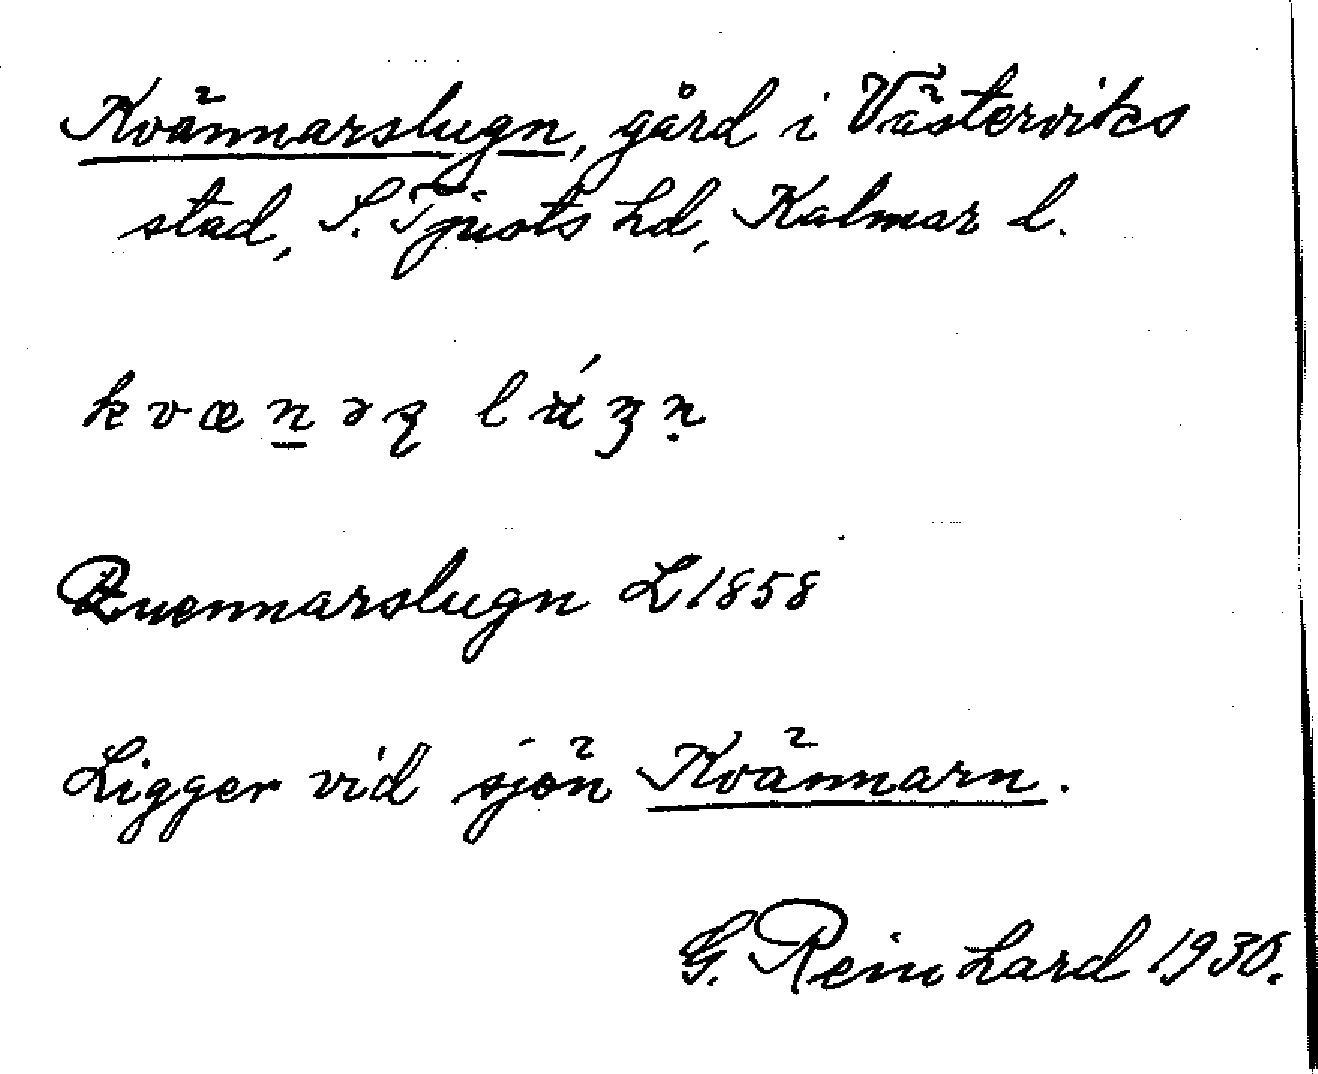 Kvännarslugn, gård i Västerviks
stad, S. Tjusts hd, Kalmar l.
kvæn̲əʂ lʉ́ʒṇ
Quennarslugn L 1858
Ligger vid sjön Kvännarn.
G. Reinhard 1930.